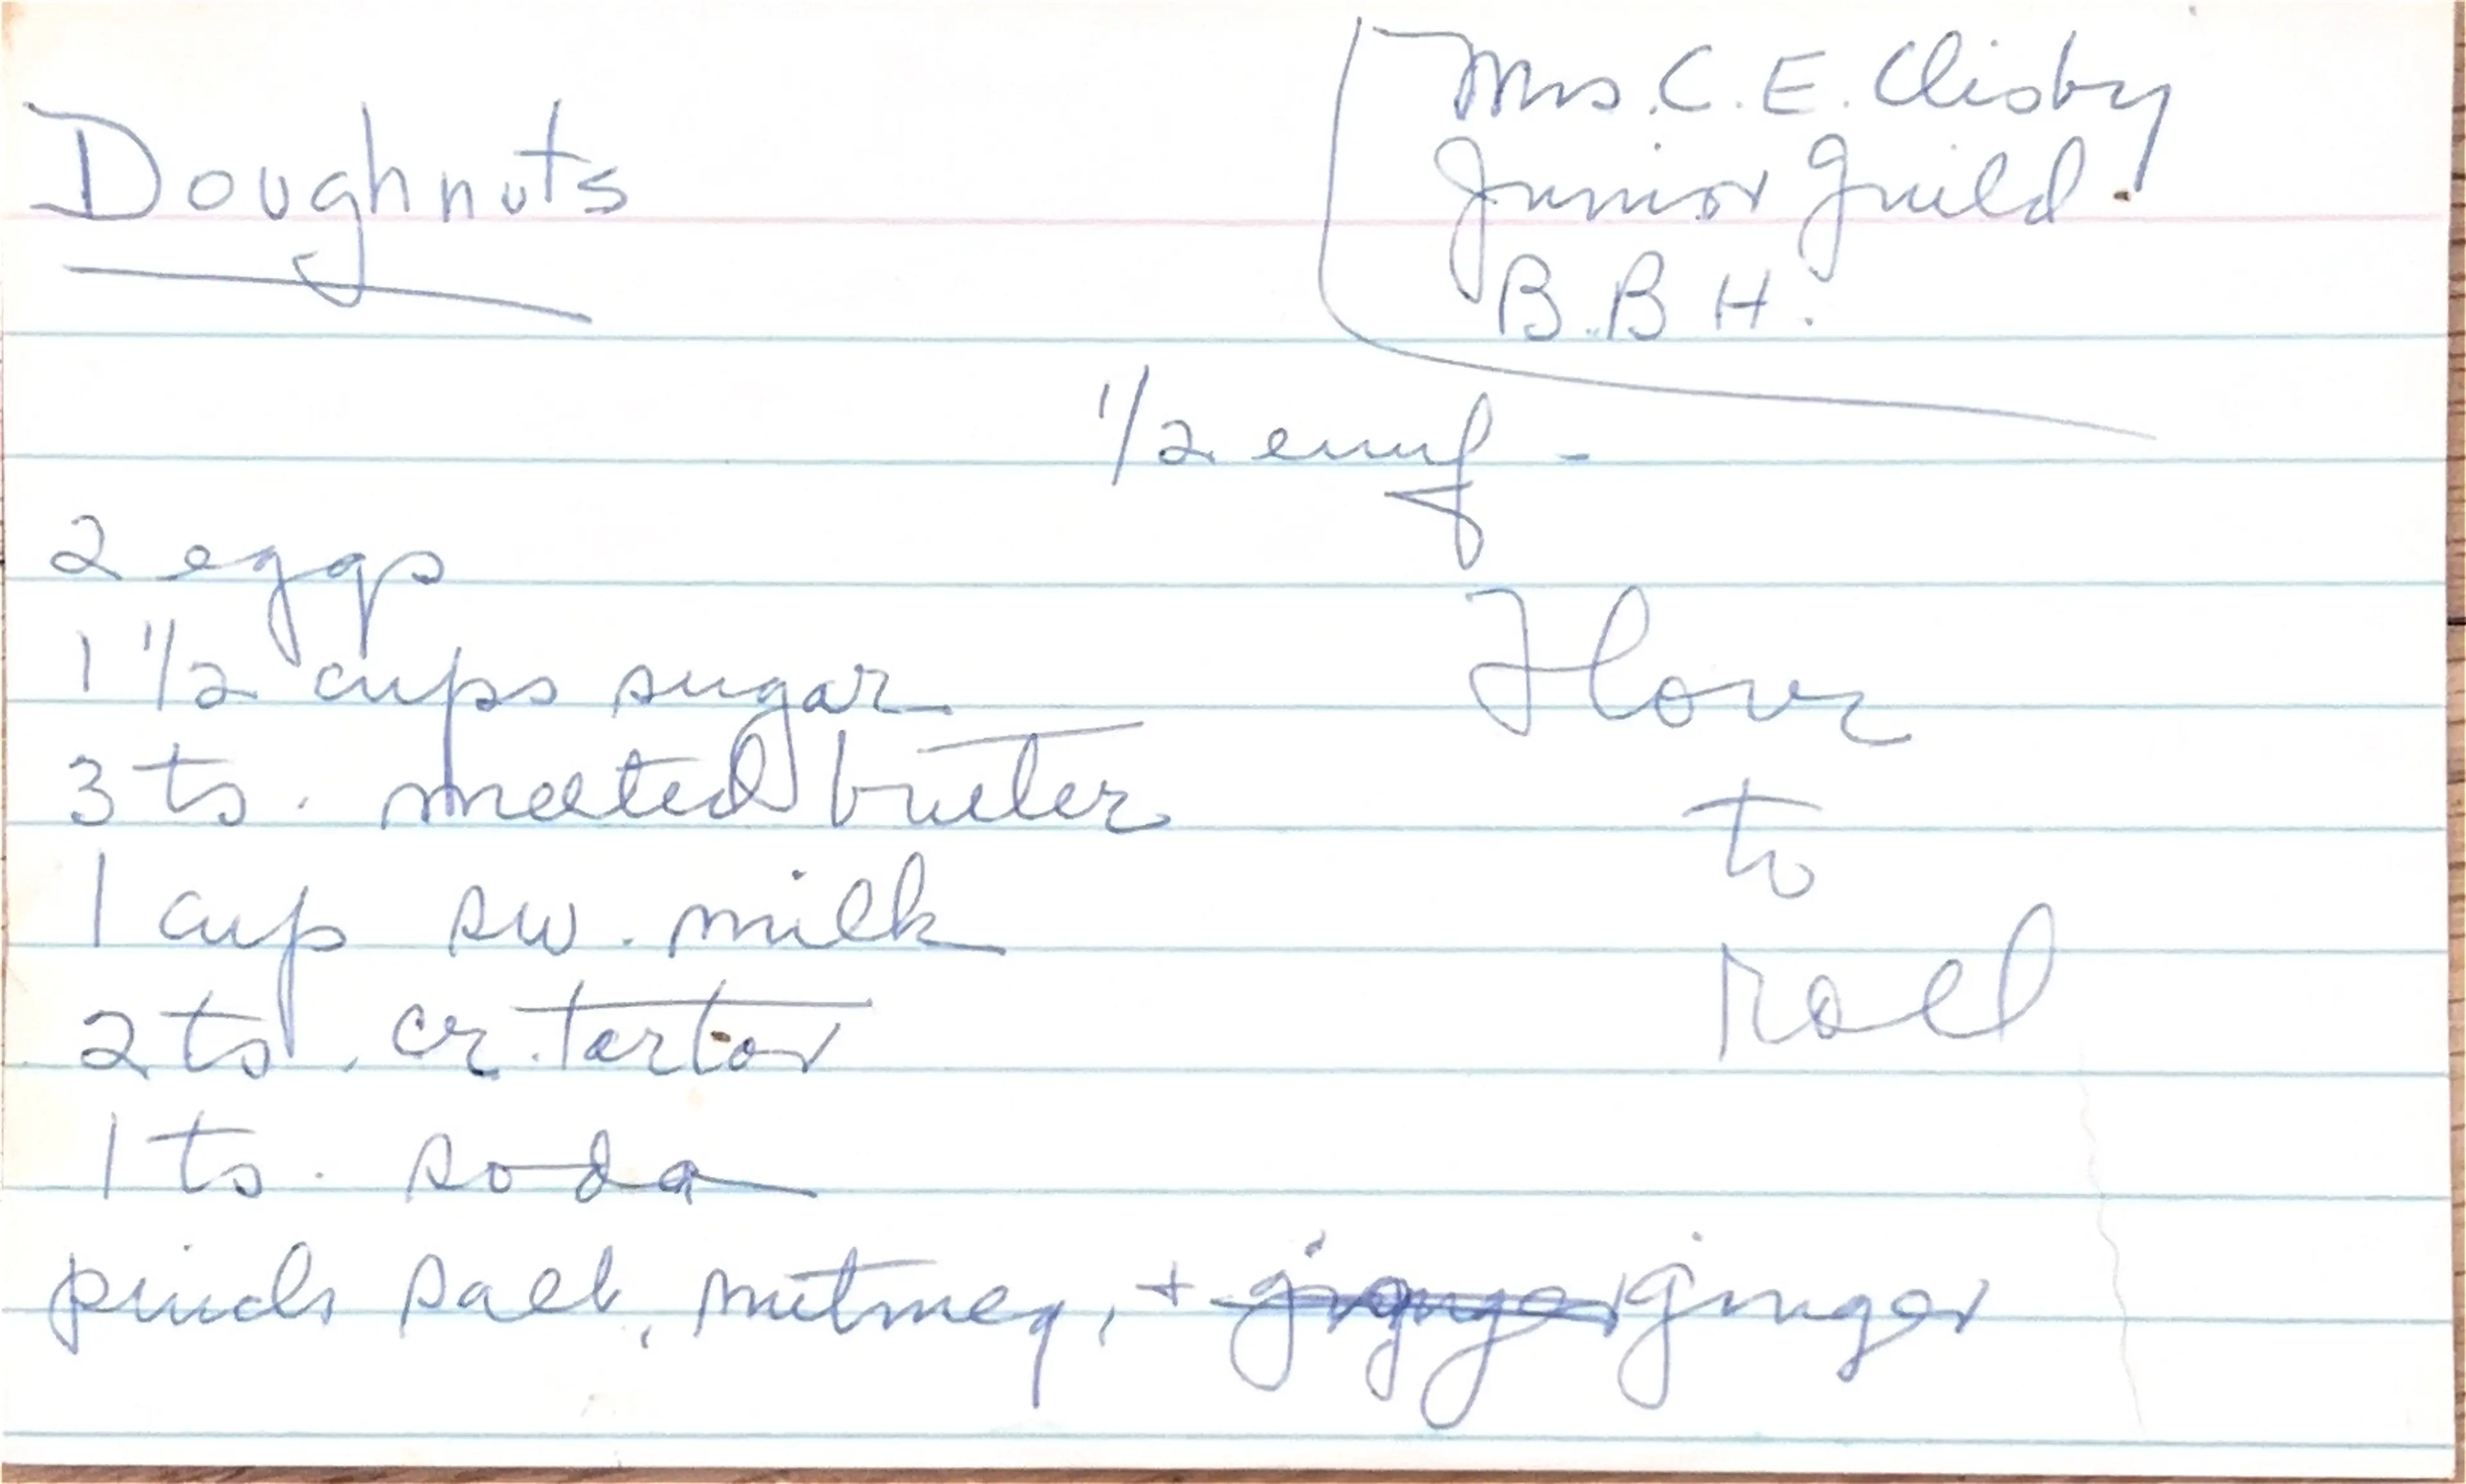 Doughnuts
Mrs. C. E. Clisby
Junior Guild.
B.B H.
1/2 enuf -
2 eggs
1 1/2 cups sugar
3 ts. melted butter
1 cup sw. milk
2 ts. cr. tartar
1 ts. soda
pinch salt, nutmeg, + ginger
Flour
to
roll